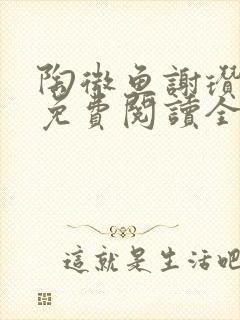 陶微魚謝瓚
免費閱讀全
這就是生活吧